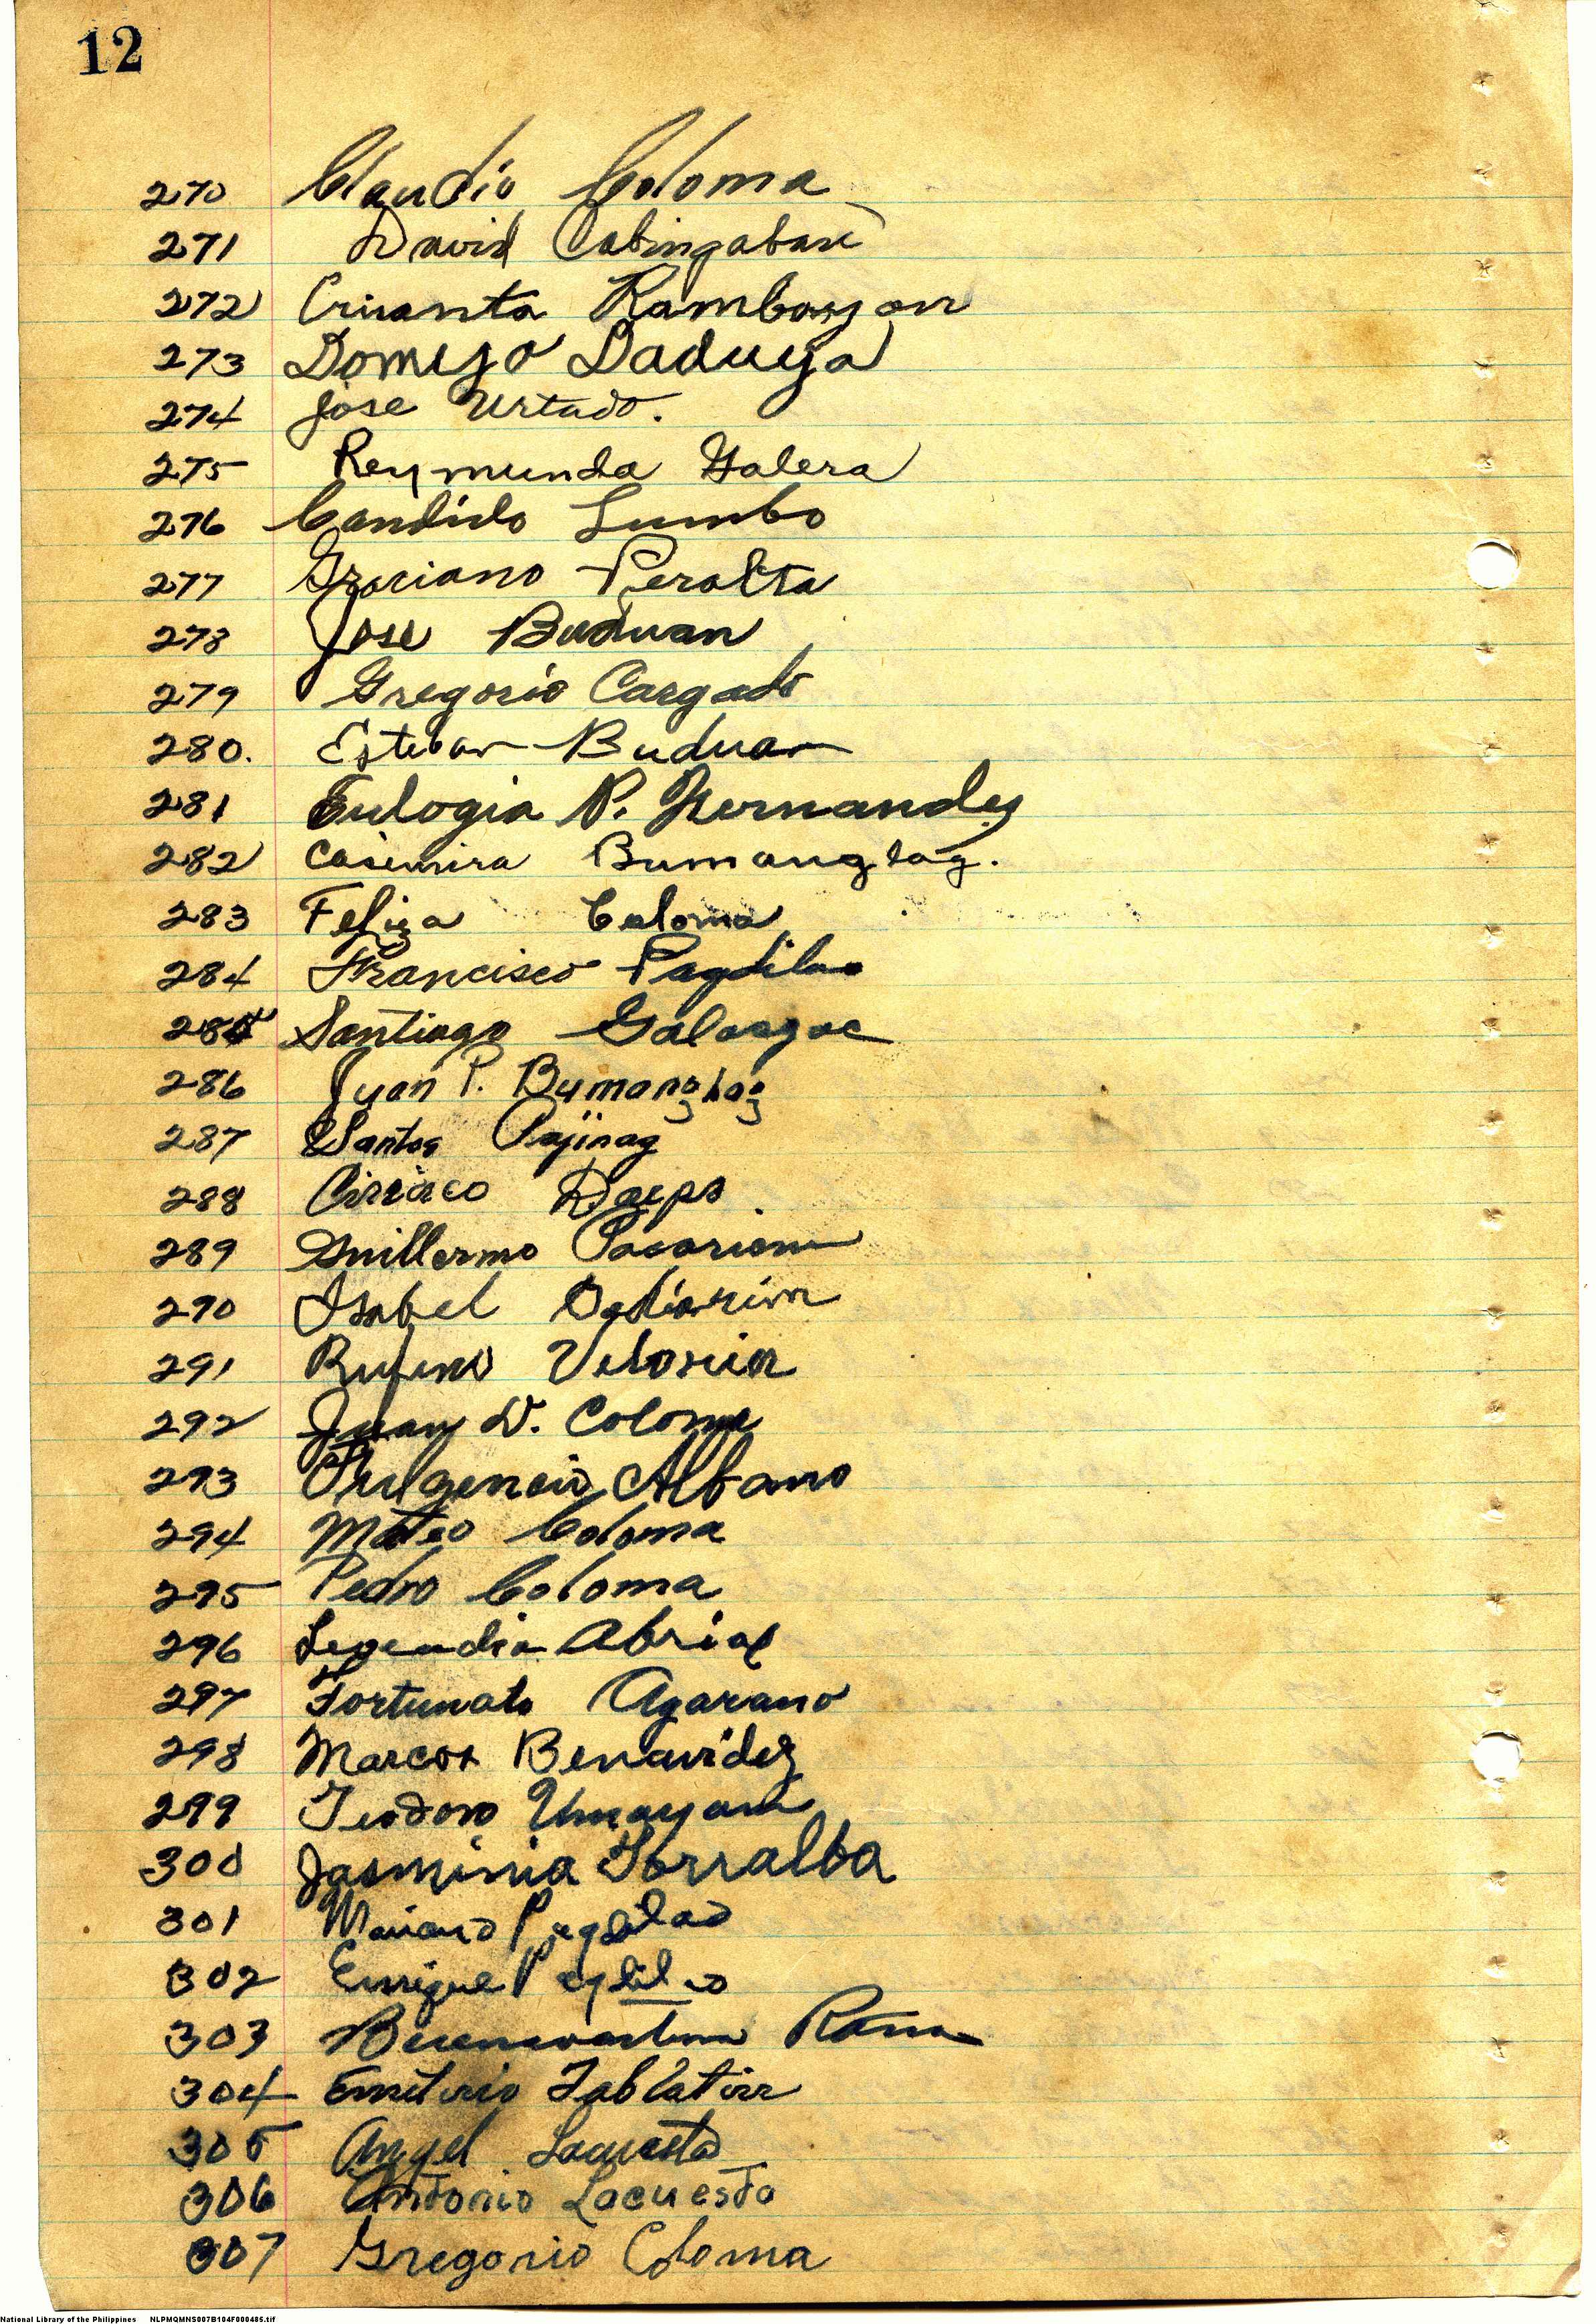 12
270 Claudio Coloma
271 David Cabingabase
272 Rambayon
273 Domigo Daduya
274 Jose Urtado.
275 Reymunda Galera
276 Candido Lumbo
277 Graciano Peralta
278 Jose Buduan
279 Gregorio Cargado
280. Esteban Buduan
281 Eulogia P. Hernandez
282 Casimira Bumanglag.
283 Feliza Coloma
284 Francisco Pagdilao
285 Santiago
286 Juan P. Bumanglag
287 Santos Pajinag
288 Ciriaco
289 Guillermo
290 Isabel
291 Rufino Veloria
292 Juan D. Coloma
293 Fulgencio Albano
294 Mateo Coloma
295 Pedro Coloma
296 Abrial
297 Fortunato Agarano
298 Marcos Benavidez
299 Teodoro Umayam
300 Jasminia Torralba
301 Mariano Pagdilao
302 Enrique Pagdilao
303
304 Emiterio
305 Angel Lacuesta
306 Antonio Lacuesta
307 Gregorio Coloma
National Library of the Philippines NLPMQMNS007B104F000485.tif